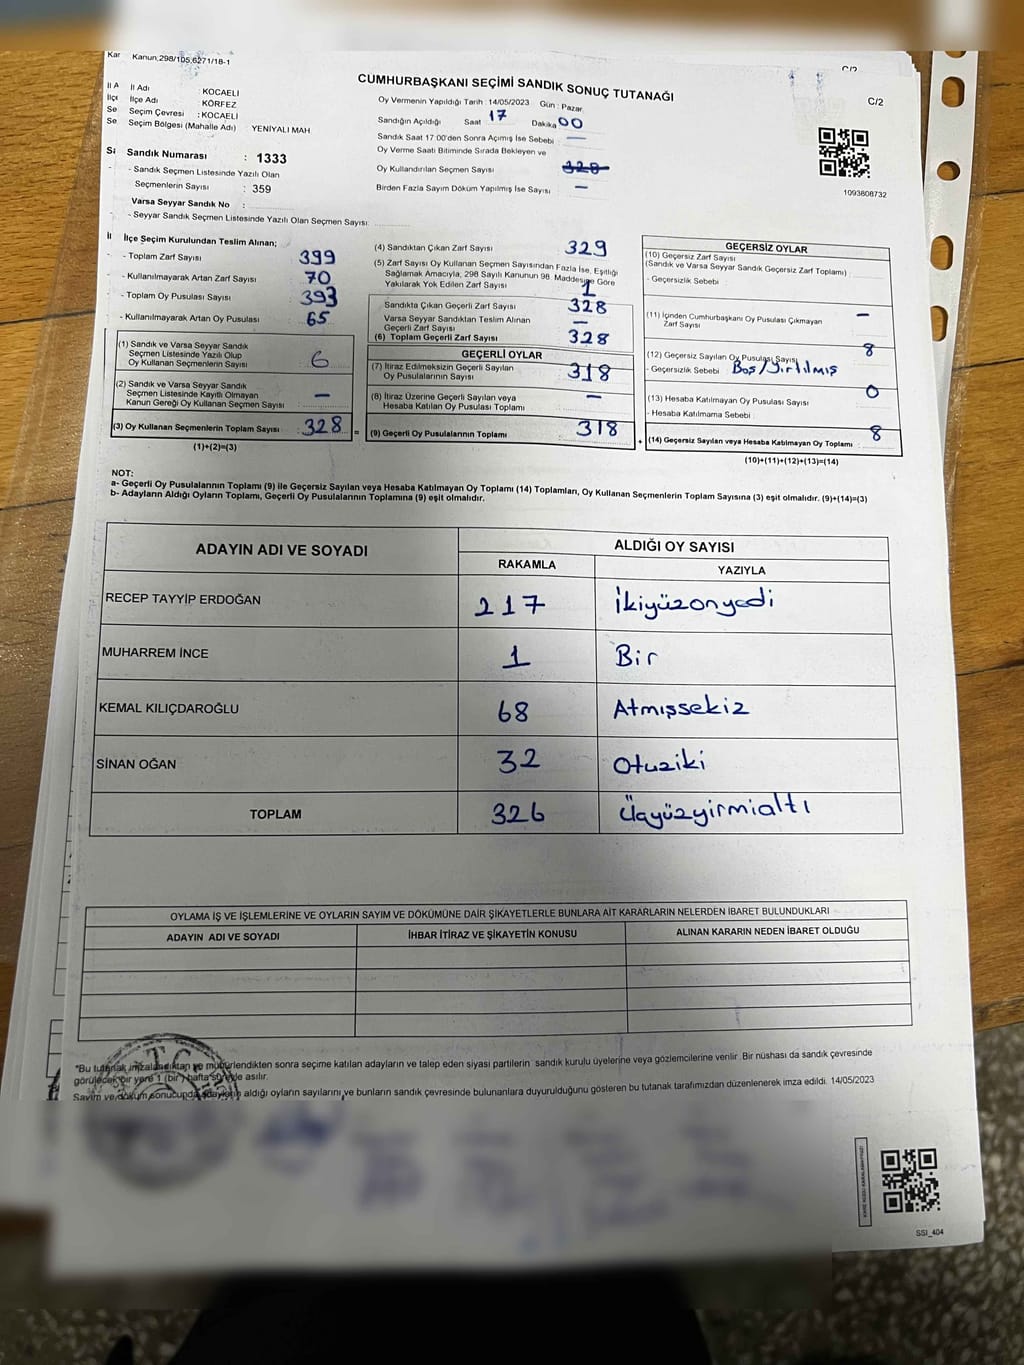 Kar Kanun,298/105,6271/18-1
CUMHURBAŞKANI SEÇİMİ SANDIK SONUÇ TUTANAĞI
C/2
İl Adı : KOCAELİ
İlçe Adı : KÖRFEZ
Seçim Çevresi : KOCAELİ
Seçim Bölgesi (Mahalle Adı) YENİYALI MAH
Sandık Numarası : 1333
- Sandık Seçmen Listesinde Yazılı Olan
Seçmenlerin Sayısı : 359
Varsa Seyyar Sandık No :
- Seyyar Sandık Seçmen Listesinde Yazılı Olan Seçmen Sayısı:
Oy Vermenin Yapıldığı Tarih : 14/05/2023 Gün : Pazar
Sandığın Açıldığı Saat 17 Dakika 00
Sandık Saat 17:00'den Sonra Açmış İse Sebebi —
Oy Verme Saati Bitiminde Sırada Bekleyen ve
Oy Kullandırılan Seçmen Sayısı 328
Birden Fazla Sayım Döküm Yapılmış İse Sayısı —
1093808732
İlçe Seçim Kurulundan Teslim Alınan;
- Toplam Zarf Sayısı 399
- Kullanılmayarak Artan Zarf Sayısı 70
- Toplam Oy Pusulası Sayısı 393
- Kullanılmayarak Artan Oy Pusulası 65
(1) Sandık ve Varsa Seyyar Sandık
Seçmen Listesinde Yazılı Olup
Oy Kullanan Seçmenlerin Sayısı 6
(2) Sandık ve Varsa Seyyar Sandık
Seçmen Listesinde Kayıtlı Olmayan
Kanun Gereği Oy Kullanan Seçmen Sayısı —
(3) Oy Kullanan Seçmenlerin Toplam Sayısı : 328 =
(1)+(2)=(3)
(4) Sandıktan Çıkan Zarf Sayısı 329
(5) Zarf Sayısı Oy Kullanan Seçmen Sayısından Fazla İse, Eşitliği
Sağlamak Amacıyla, 298 Sayılı Kanunun 98. Maddesine Göre
Yakılarak Yok Edilen Zarf Sayısı 1
Sandıkta Çıkan Geçerli Zarf Sayısı 328
Varsa Seyyar Sandıktan Teslim Alınan
Geçerli Zarf Sayısı —
(6) Toplam Geçerli Zarf Sayısı 328
GEÇERLİ OYLAR
(7) İtiraz Edilmeksizin Geçerli Sayılan
Oy Pusulalarının Sayısı 318
(8) İtiraz Üzerine Geçerli Sayılan veya
Hesaba Katılan Oy Pusulası Toplamı —
(9) Geçerli Oy Pusulalarının Toplamı : 318 +
GEÇERSİZ OYLAR
(10) Geçersiz Zarf Sayısı
(Sandık ve Varsa Seyyar Sandık Geçersiz Zarf Toplamı)
- Geçersizlik Sebebi
(11) İçinden Cumhurbaşkanı Oy Pusulası Çıkmayan —
Zarf Sayısı
(12) Geçersiz Sayılan Oy Pusulası Sayısı 8
- Geçersizlik Sebebi Boş/Yırtılmış
(13) Hesaba Katılmayan Oy Pusulası Sayısı 0
- Hesaba Katılmama Sebebi
(14) Geçersiz Sayılan veya Hesaba Katılmayan Oy Toplamı 8
(10)+(11)+(12)+(13)=(14)
NOT:
a- Geçerli Oy Pusulalarının Toplamı (9) ile Geçersiz Sayılan veya Hesaba Katılmayan Oy Toplamı (14) Toplamları, Oy Kullanan Seçmenlerin Toplam Sayısına (3) eşit olmalıdır. (9)+(14)=(3)
b- Adayların Aldığı Oyların Toplamı, Geçerli Oy Pusulalarının Toplamına (9) eşit olmalıdır.
ADAYIN ADI VE SOYADI ALDIĞI OY SAYISI
RAKAMLA YAZIYLA
RECEP TAYYİP ERDOĞAN 217 İkiyüzonyedi
MUHARREM İNCE 1 Bir
KEMAL KILIÇDAROĞLU 68 Atmışsekiz
SİNAN OĞAN 32 Otuziki
TOPLAM 326 Üçyüzyirmialtı
OYLAMA İŞ VE İŞLEMLERİNE VE OYLARIN SAYIM VE DÖKÜMÜNE DAİR ŞİKAYETLERLE BUNLARA AİT KARARLARIN NELERDEN İBARET BULUNDUKLARI
ADAYIN ADI VE SOYADI İHBAR İTİRAZ VE ŞİKAYETİN KONUSU ALINAN KARARIN NEDEN İBARET OLDUĞU
T.C.
*Bu tutanak imzalandıktan ve mühürlendikten sonra seçime katılan adayların ve talep eden siyasi partilerin sandık kurulu üyelerine veya gözlemcilerine verilir. Bir nüshası da sandık çevresinde
görülecek bir yere 1 (bir) hafta süreyle asılır.
Sayım ve döküm sonucunda adayların aldığı oyların sayılarını ve bunların sandık çevresinde bulunanlara duyurulduğunu gösteren bu tutanak tarafımızdan düzenlenerek imza edildi. 14/05/2023
SSI_404